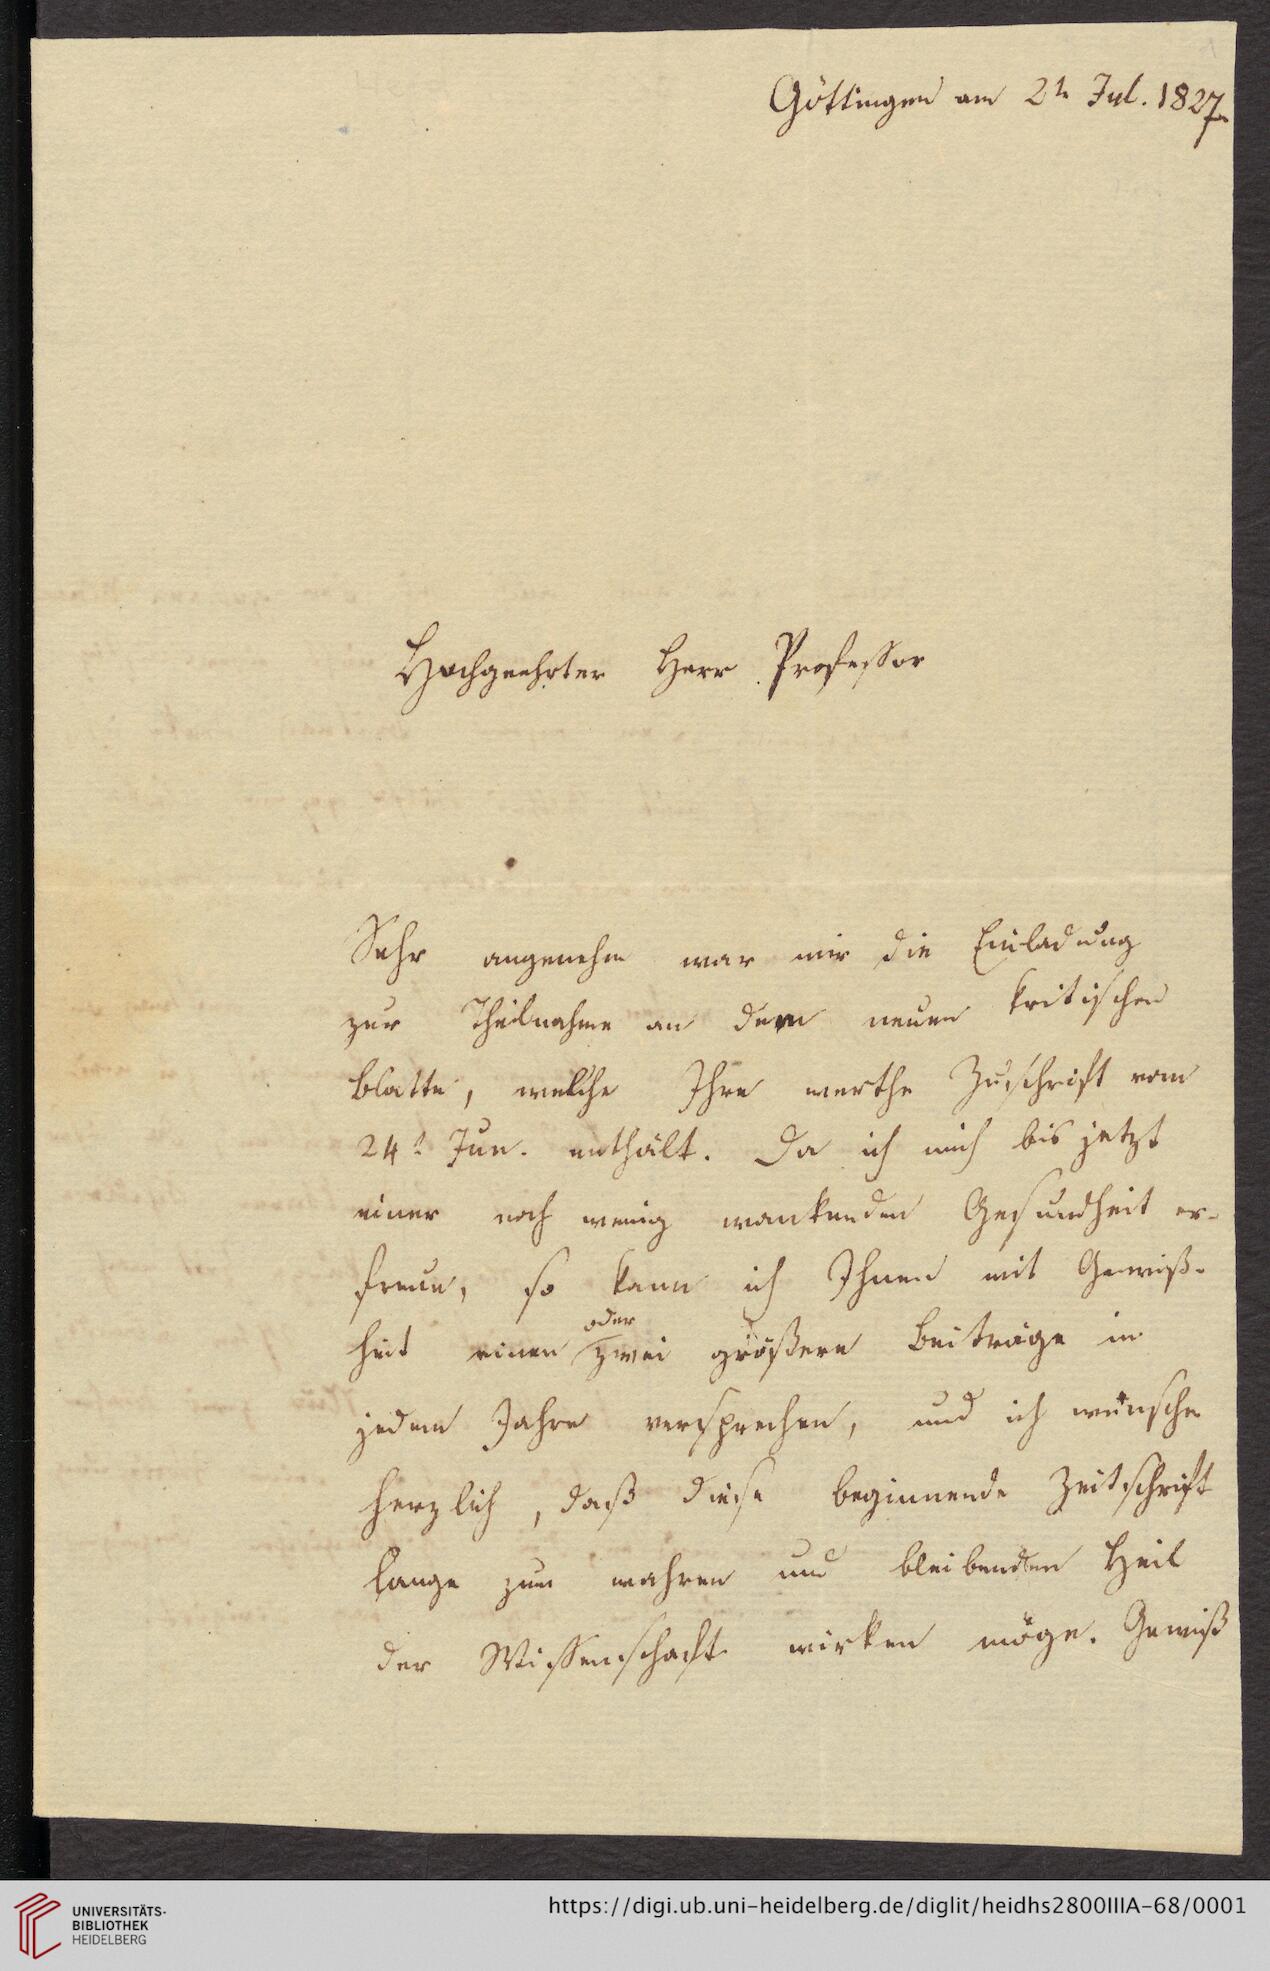 Göttingen am 2tn Jul. 1827.
Hochgeehrter Herr Professor
Sehr angenehm war mir die Einladung
zur Theilnahme an dem neuen kritischen
Blatte, welche Ihre werthe Zuschrift vom
24t Jun. enthält. Da ich mich bis jetzt
einer noch wenig wankenden Gesundheit er-
freue, so kann ich Ihnen mit Gewiß-
heit einen oder zwei größere Beiträge in
jedem Jahre versprechen, und ich wünsche
herzlich, daß diese beginnende Zeitschrift
lange zum wahren und bleibenden Heil
der Wissenschaft wirken möge. Gewiß
UNIVERSITÄTS-
BIBLIOTHEK
HEIDELBERG
https://digi.ub.uni-heidelberg.de/diglit/heidhs2800IIIA-68/0001